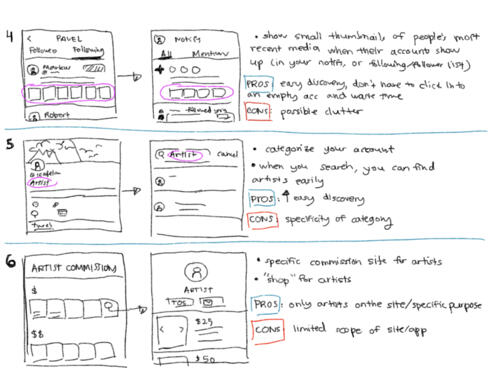 4
< PAVEL
Followed Following
Robert
NOTIFS
All Mentions
followed you
• show small thumbnails of people's most
recent media when their account show
up (in your notifs, or following/follower list)
PROS: easy discovery, don't have to click into
an empty acc and waste time
CONS: possible clutter
5
Artist
Artist cancel
• categorize your account
• when you search, you can find
artists easily
PROS: ↑ easy discovery
CONS: specificity of category
6
ARTIST COMMISSION
$
$$
ARTIST
TOS
< >
$25
$50
• specific commission site for artists
• "shop" for artists
PROS: only artists on the site/specific purpose
CONS: limited scope of site/app